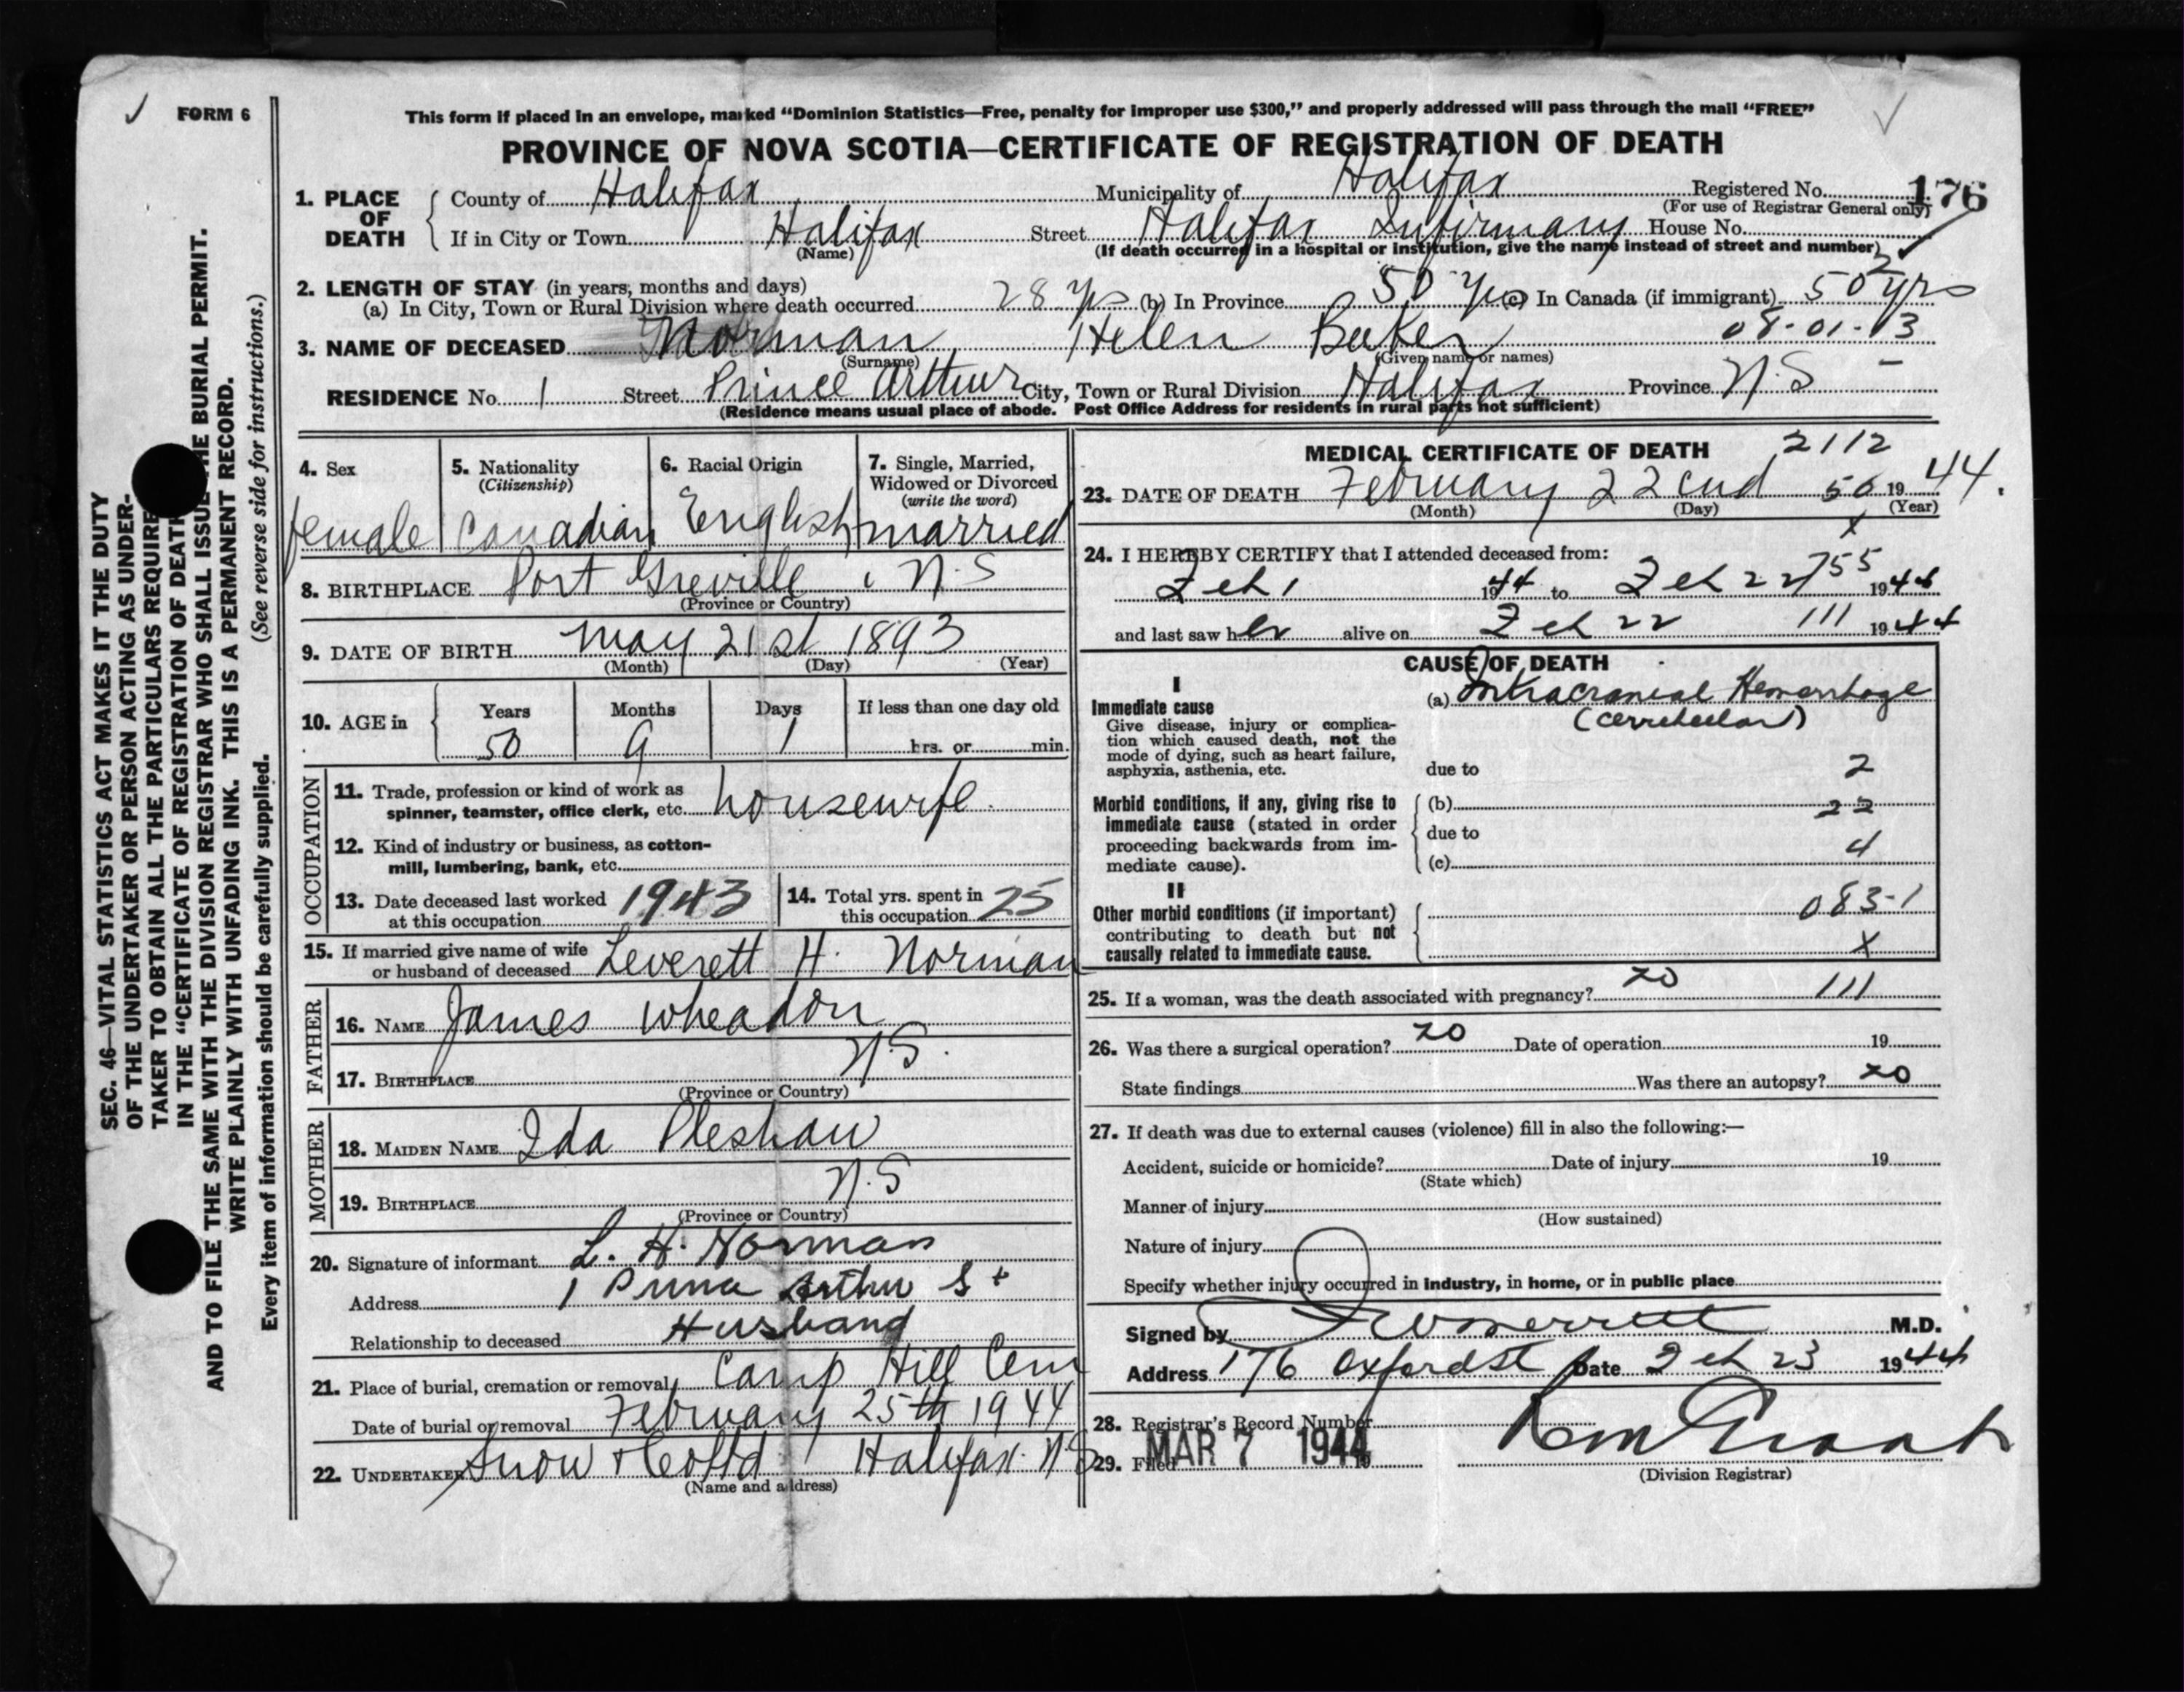 ✓ FORM 6
This form if placed in an envelope, marked “Dominion Statistics—Free, penalty for improper use $300,” and properly addressed will pass through the mail “FREE”
PROVINCE OF NOVA SCOTIA—CERTIFICATE OF REGISTRATION OF DEATH
1. PLACE OF DEATH County of Halifax Municipality of Halifax Registered No. 176
(For use of Registrar General only)
If in City or Town Halifax Street Halifax Infirmary House No.
(Name) (If death occurred in a hospital or institution, give the name instead of street and number)
2. LENGTH OF STAY (in years, months and days)
(a) In City, Town or Rural Division where death occurred 28 yrs (b) In Province 50 yrs (c) In Canada (if immigrant) 50 yrs
3. NAME OF DECEASED Norman Helen 08-01-13
(Surname) (Given name or names)
RESIDENCE No. 1 Street Prince Arthur City, Town or Rural Division Halifax Province N.S
(Residence means usual place of abode. Post Office Address for residents in rural parts not sufficient)
4. Sex female
5. Nationality (Citizenship) Canadian
6. Racial Origin English
7. Single, Married, Widowed or Divorced (write the word) married
8. BIRTHPLACE Port Greville, N.S
(Province or Country)
9. DATE OF BIRTH May 21st 1893
(Month) (Day) (Year)
10. AGE in Years 50 Months 9 Days 1 If less than one day old hrs. or min.
OCCUPATION
11. Trade, profession or kind of work as spinner, teamster, office clerk, etc. housewife.
12. Kind of industry or business, as cotton-mill, lumbering, bank, etc.
13. Date deceased last worked at this occupation 1943
14. Total yrs. spent in this occupation 25
15. If married give name of wife or husband of deceased Leverett H. Norman
FATHER
16. NAME James Wheadon
17. BIRTHPLACE N.S.
(Province or Country)
MOTHER
18. MAIDEN NAME Ida
19. BIRTHPLACE N.S
(Province or Country)
20. Signature of informant L. H. Norman
Address 1 Prince Arthur St
Relationship to deceased Husband
21. Place of burial, cremation or removal Camp Hill Cem
Date of burial or removal February 25th 1944
22. UNDERTAKER Snow & Co Ltd Halifax. NS
(Name and address)
MEDICAL CERTIFICATE OF DEATH 2112
23. DATE OF DEATH February 22end 50 1944.
(Month) (Day) (Year)
x
24. I HEREBY CERTIFY that I attended deceased from:
Feb 1 1944 to Feb 22 755 1944
and last saw her alive on Feb 22 111 1944
CAUSE OF DEATH
I
Immediate cause
Give disease, injury or complication which caused death, not the mode of dying, such as heart failure, asphyxia, asthenia, etc.
(a) Intracranial Hemorrhage
(cerebellar)
due to 2
Morbid conditions, if any, giving rise to immediate cause (stated in order proceeding backwards from immediate cause).
(b) 22
due to 4
(c)
II
Other morbid conditions (if important) contributing to death but not causally related to immediate cause.
083-1
x
25. If a woman, was the death associated with pregnancy? no 111
26. Was there a surgical operation? no Date of operation 19
State findings Was there an autopsy? no
27. If death was due to external causes (violence) fill in also the following:—
Accident, suicide or homicide? Date of injury 19
(State which)
Manner of injury
(How sustained)
Nature of injury
Specify whether injury occurred in industry, in home, or in public place
Signed by M.D.
Address 176 Oxford St Date Feb 23 1944
28. Registrar's Record Number
29. Filed MAR 7 1944 19
(Division Registrar)
SEC. 46—VITAL STATISTICS ACT MAKES IT THE DUTY
OF THE UNDERTAKER OR PERSON ACTING AS UNDER-
TAKER TO OBTAIN ALL THE PARTICULARS REQUIRE
IN THE “CERTIFICATE OF REGISTRATION OF DEATH
AND TO FILE THE SAME WITH THE DIVISION REGISTRAR WHO SHALL ISSUE THE BURIAL PERMIT.
WRITE PLAINLY WITH UNFADING INK. THIS IS A PERMANENT RECORD.
Every item of information should be carefully supplied. (See reverse side for instructions.)